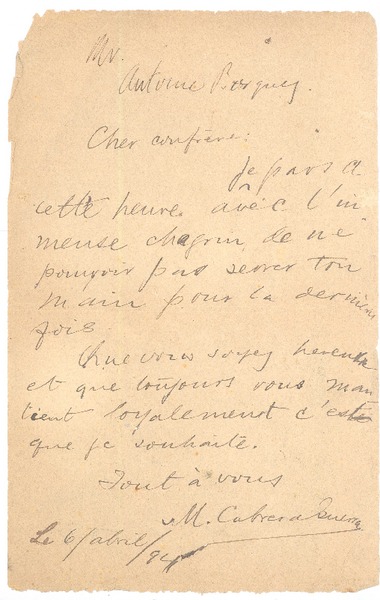 Mr.
Antoine
Cher confrère:
Je pars a
cette heure avec l'in
mense chagrin de ne
pouvoir pas serrer ton
main pour la dernière
fois.
Que vous soyez hereux
et que toujours vous man
tient loyalement c'est
que je souhaite.
Tout à vous
M. Cabrera Guerra
Le 6/abril/94